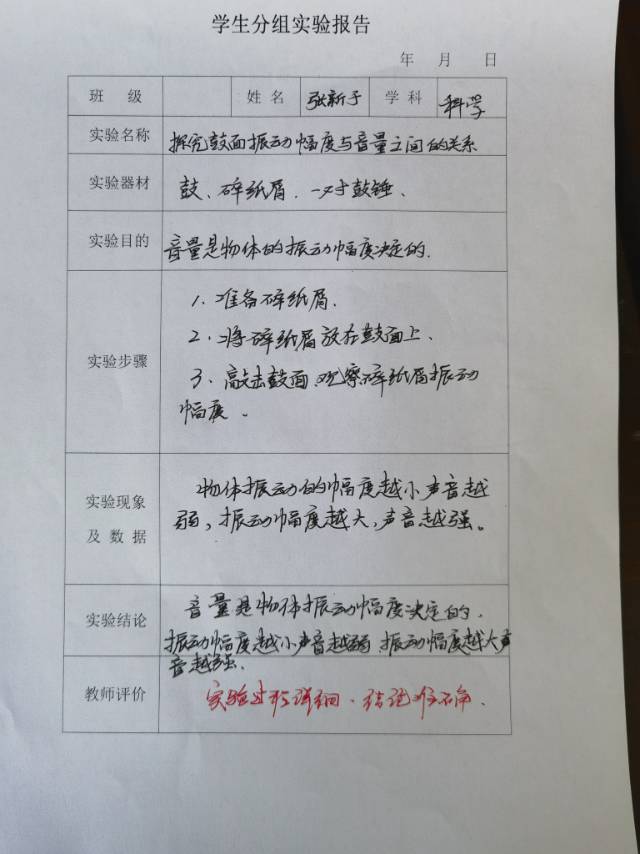 学生分组实验报告
年 月 日
班 级 姓 名 张新予 学 科 科学
实验名称 探究鼓面振动幅度与音量之间的关系
实验器材 鼓、碎纸屑、一对鼓锤、
实验目的 音量是物体的振动幅度决定的.
实验步骤
1、准备碎纸屑.
2、将碎纸屑放在鼓面上、
3、敲击鼓面、观察碎纸屑振动
幅度。
实验现象
及 数 据
物体振动的幅度越小声音越
弱,振动幅度越大,声音越强。
实验结论
音量是物体振动幅度决定的、
振动幅度越小声音越弱 振动幅度越大声
音越强.
教师评价 实验过程详细、结论准确.